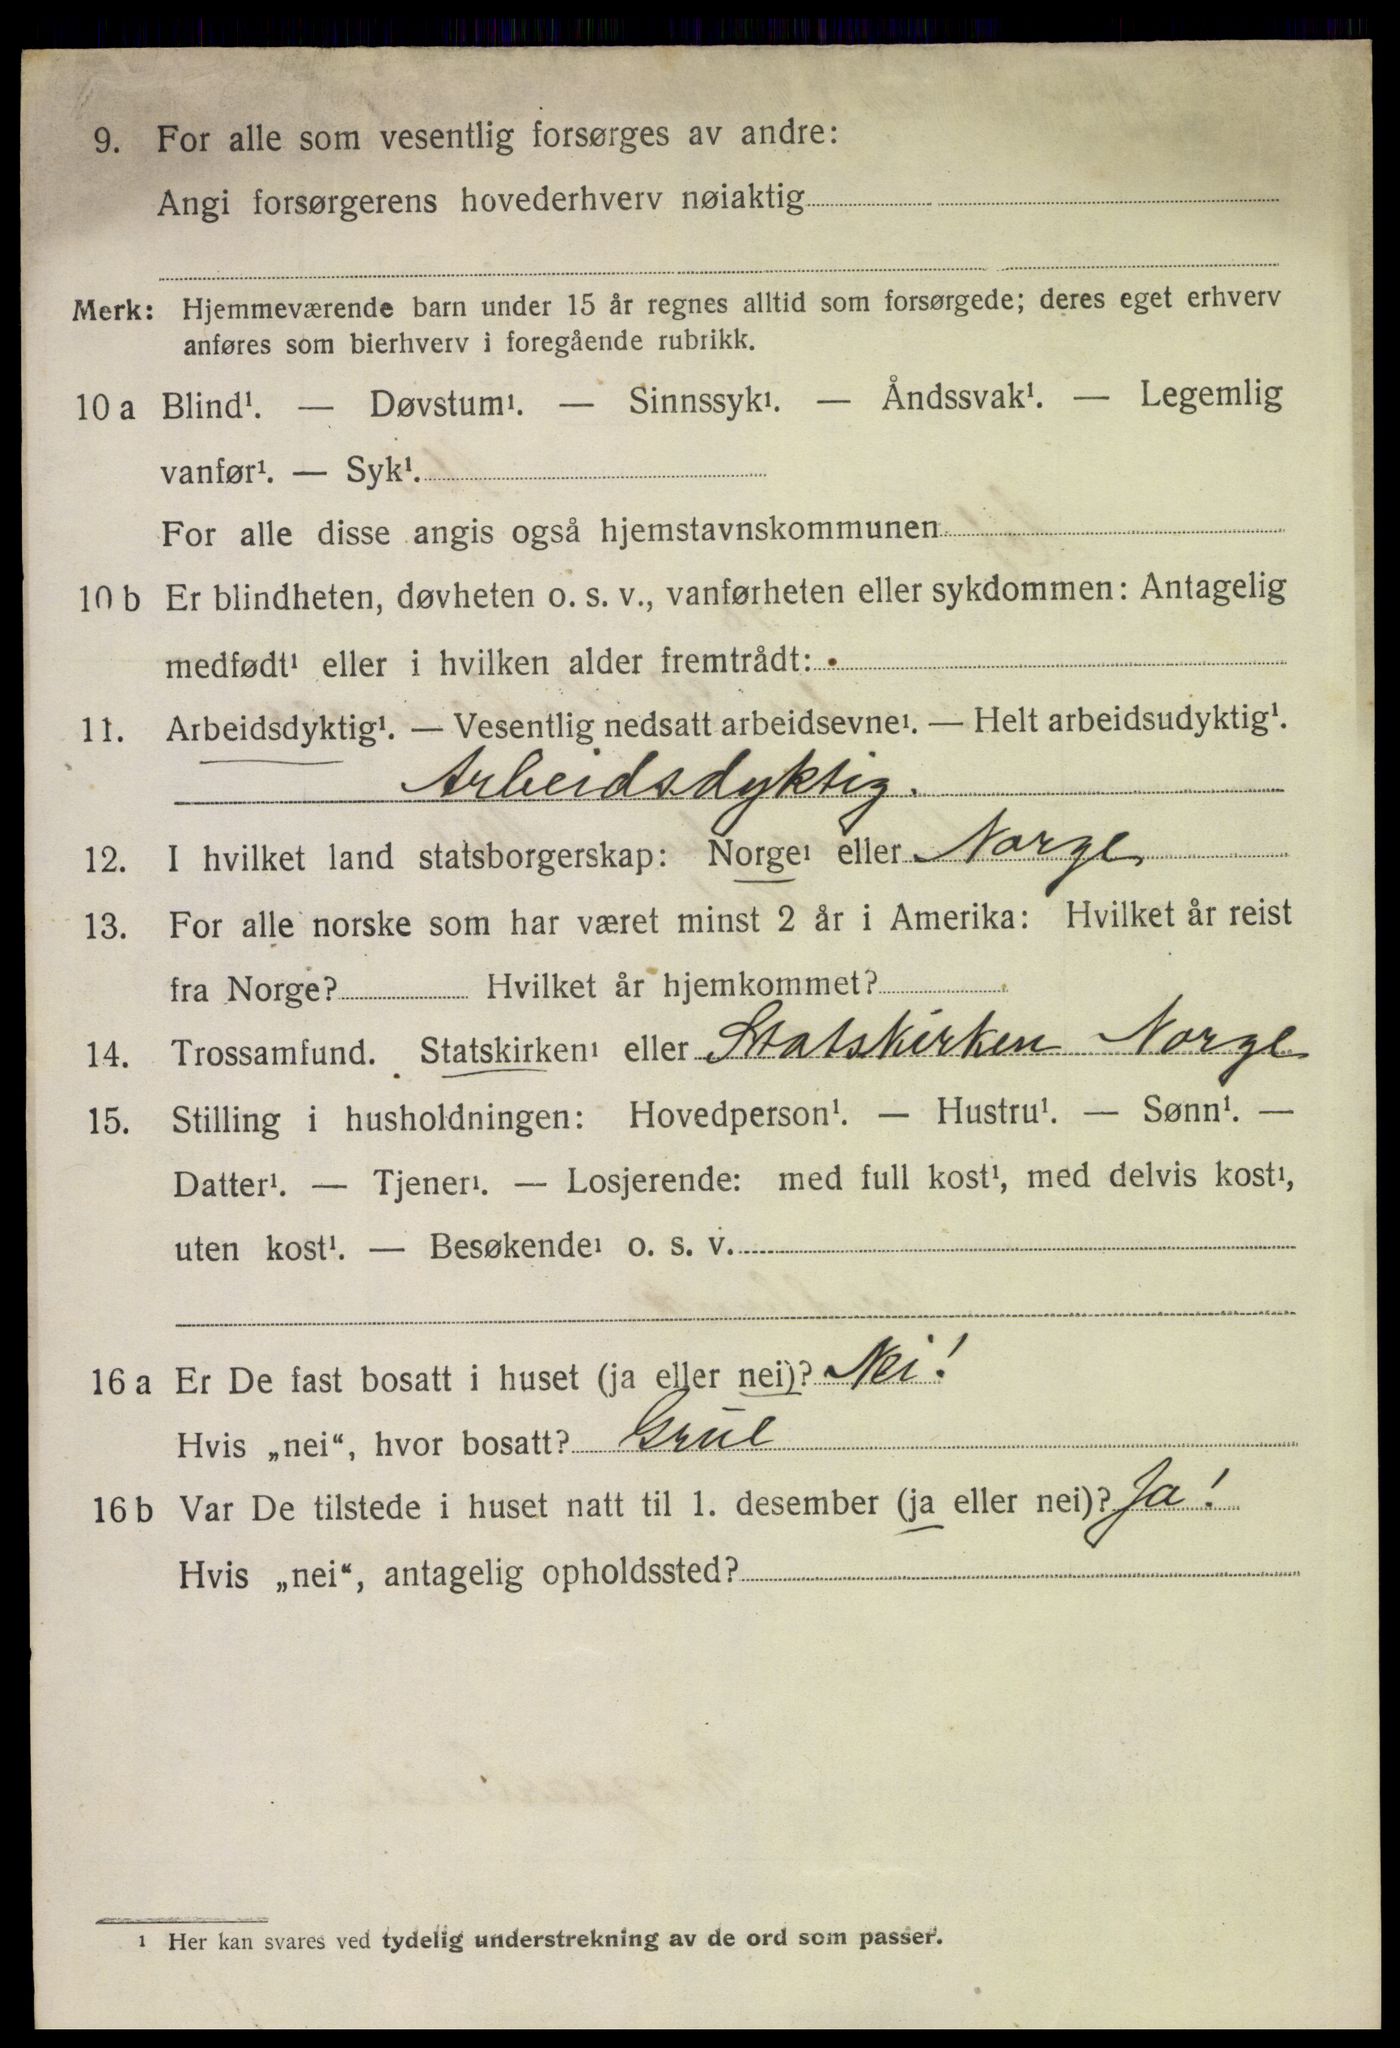 9. For alle som vesentlig forsørges av andre:
Angi forsørgerens hovederhverv nøiaktig
Merk: Hjemmeværende barn under 15 år regnes alltid som forsørgede; deres eget erhverv
anføres som bierhverv i foregående rubrikk.
10 a Blind¹. — Døvstum¹. — Sinnssyk¹. — Åndssvak¹. — Legemlig
vanfør¹. — Syk¹.
For alle disse angis også hjemstavnskommunen
10 b Er blindheten, døvheten o. s. v., vanførheten eller sykdommen: Antagelig
medfødt¹ eller i hvilken alder fremtrådt:
11. Arbeidsdyktig¹. — Vesentlig nedsatt arbeidsevne¹. — Helt arbeidsudyktig¹.
Arbeidsdyktig.
12. I hvilket land statsborgerskap: Norge¹ eller Norge
13. For alle norske som har været minst 2 år i Amerika: Hvilket år reist
fra Norge? Hvilket år hjemkommet?
14. Trossamfund. Statskirken¹ eller Statskirken Norge
15. Stilling i husholdningen: Hovedperson¹. — Hustru¹. — Sønn¹. —
Datter¹. — Tjener¹. — Losjerende: med full kost¹, med delvis kost¹,
uten kost¹. — Besøkende¹ o. s. v.
16 a Er De fast bosatt i huset (ja eller nei)? Nei!
Hvis „nei“, hvor bosatt? Grue
16 b Var De tilstede i huset natt til 1. desember (ja eller nei)? Ja!
Hvis „nei“, antagelig opholdssted?
¹ Her kan svares ved tydelig understrekning av de ord som passer.